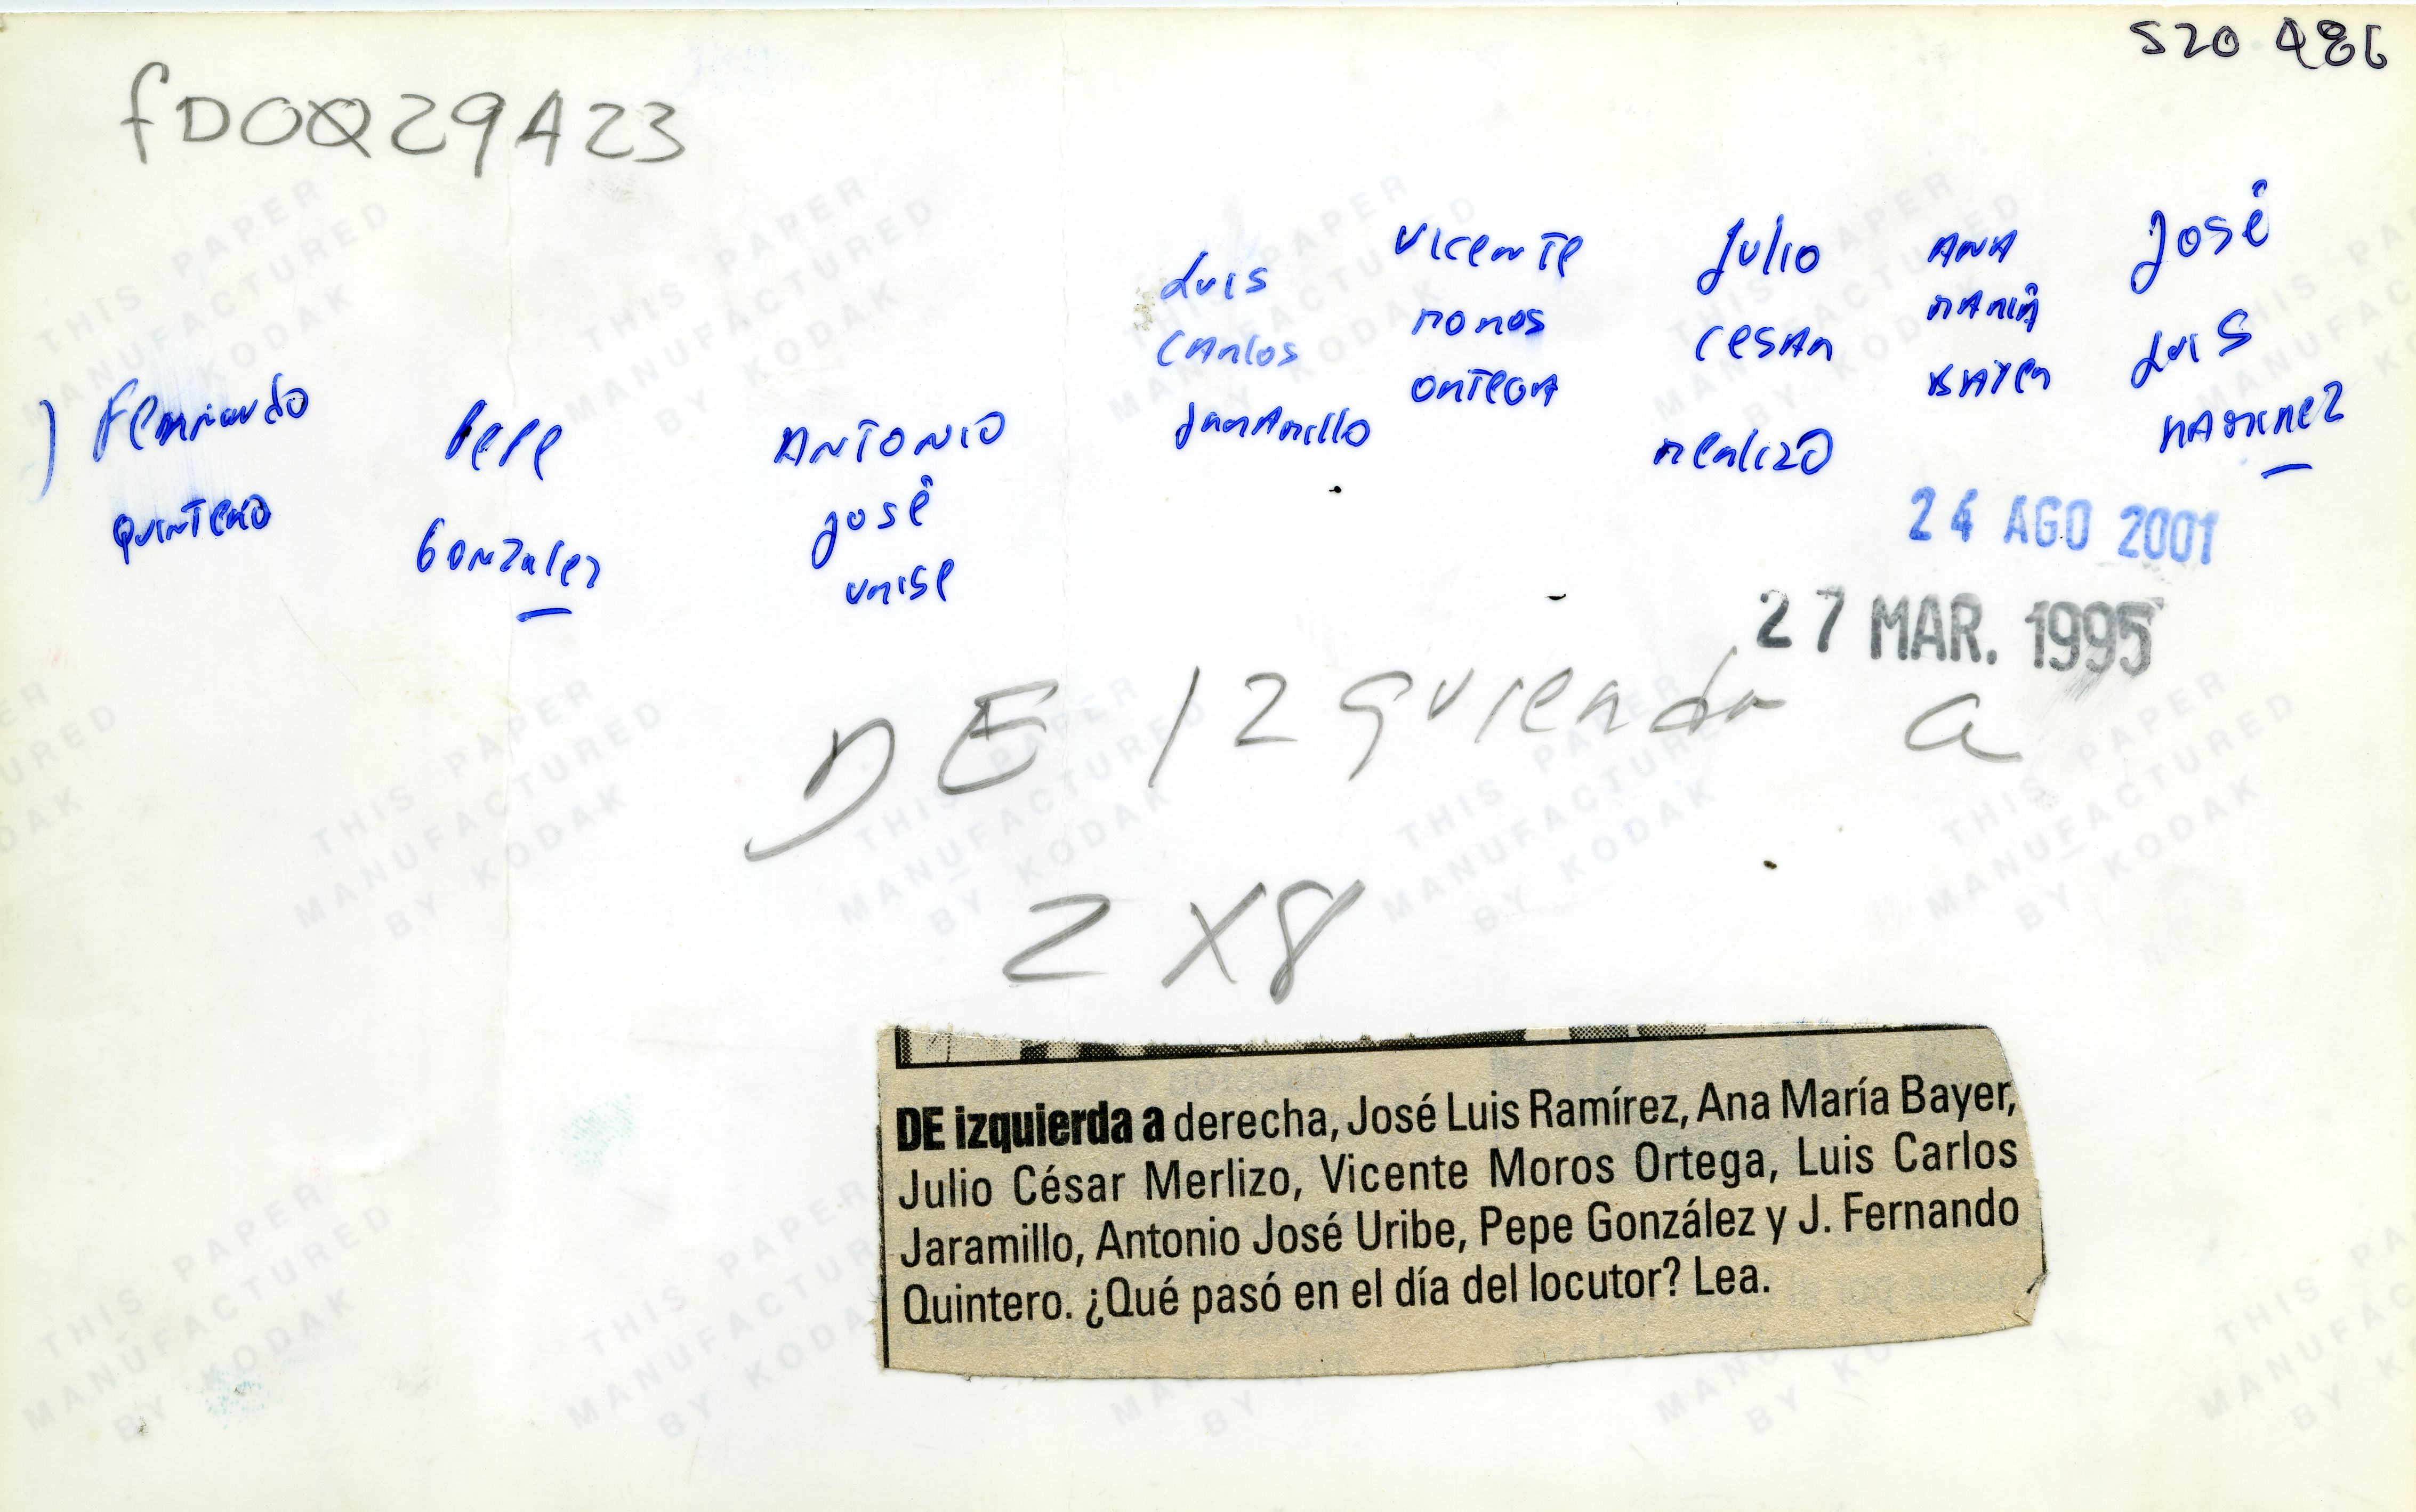 520 486
fDOQ29A23
José
Luis
Ramirez
Ana
Mariá
Bayer
Julio
Cesar
Merlizo
Vicente
Moros
Ortega
Luis
Carlos
Jaramillo
Antonio
José
Urise
Pepe
Gonzalez
Fernando
Quintero
24 AGO 2001
27 MAR. 1995
DE Izquierda a
2 X8
DE izquierda a derecha, José Luis Ramírez, Ana María Bayer,
Julio César Merlizo, Vicente Moros Ortega, Luis Carlos
Jaramillo, Antonio José Uribe, Pepe González y J. Fernando
Quintero. ¿Qué pasó en el día del locutor? Lea.
THIS PAPER
MANUFACTURED
BY KODAK